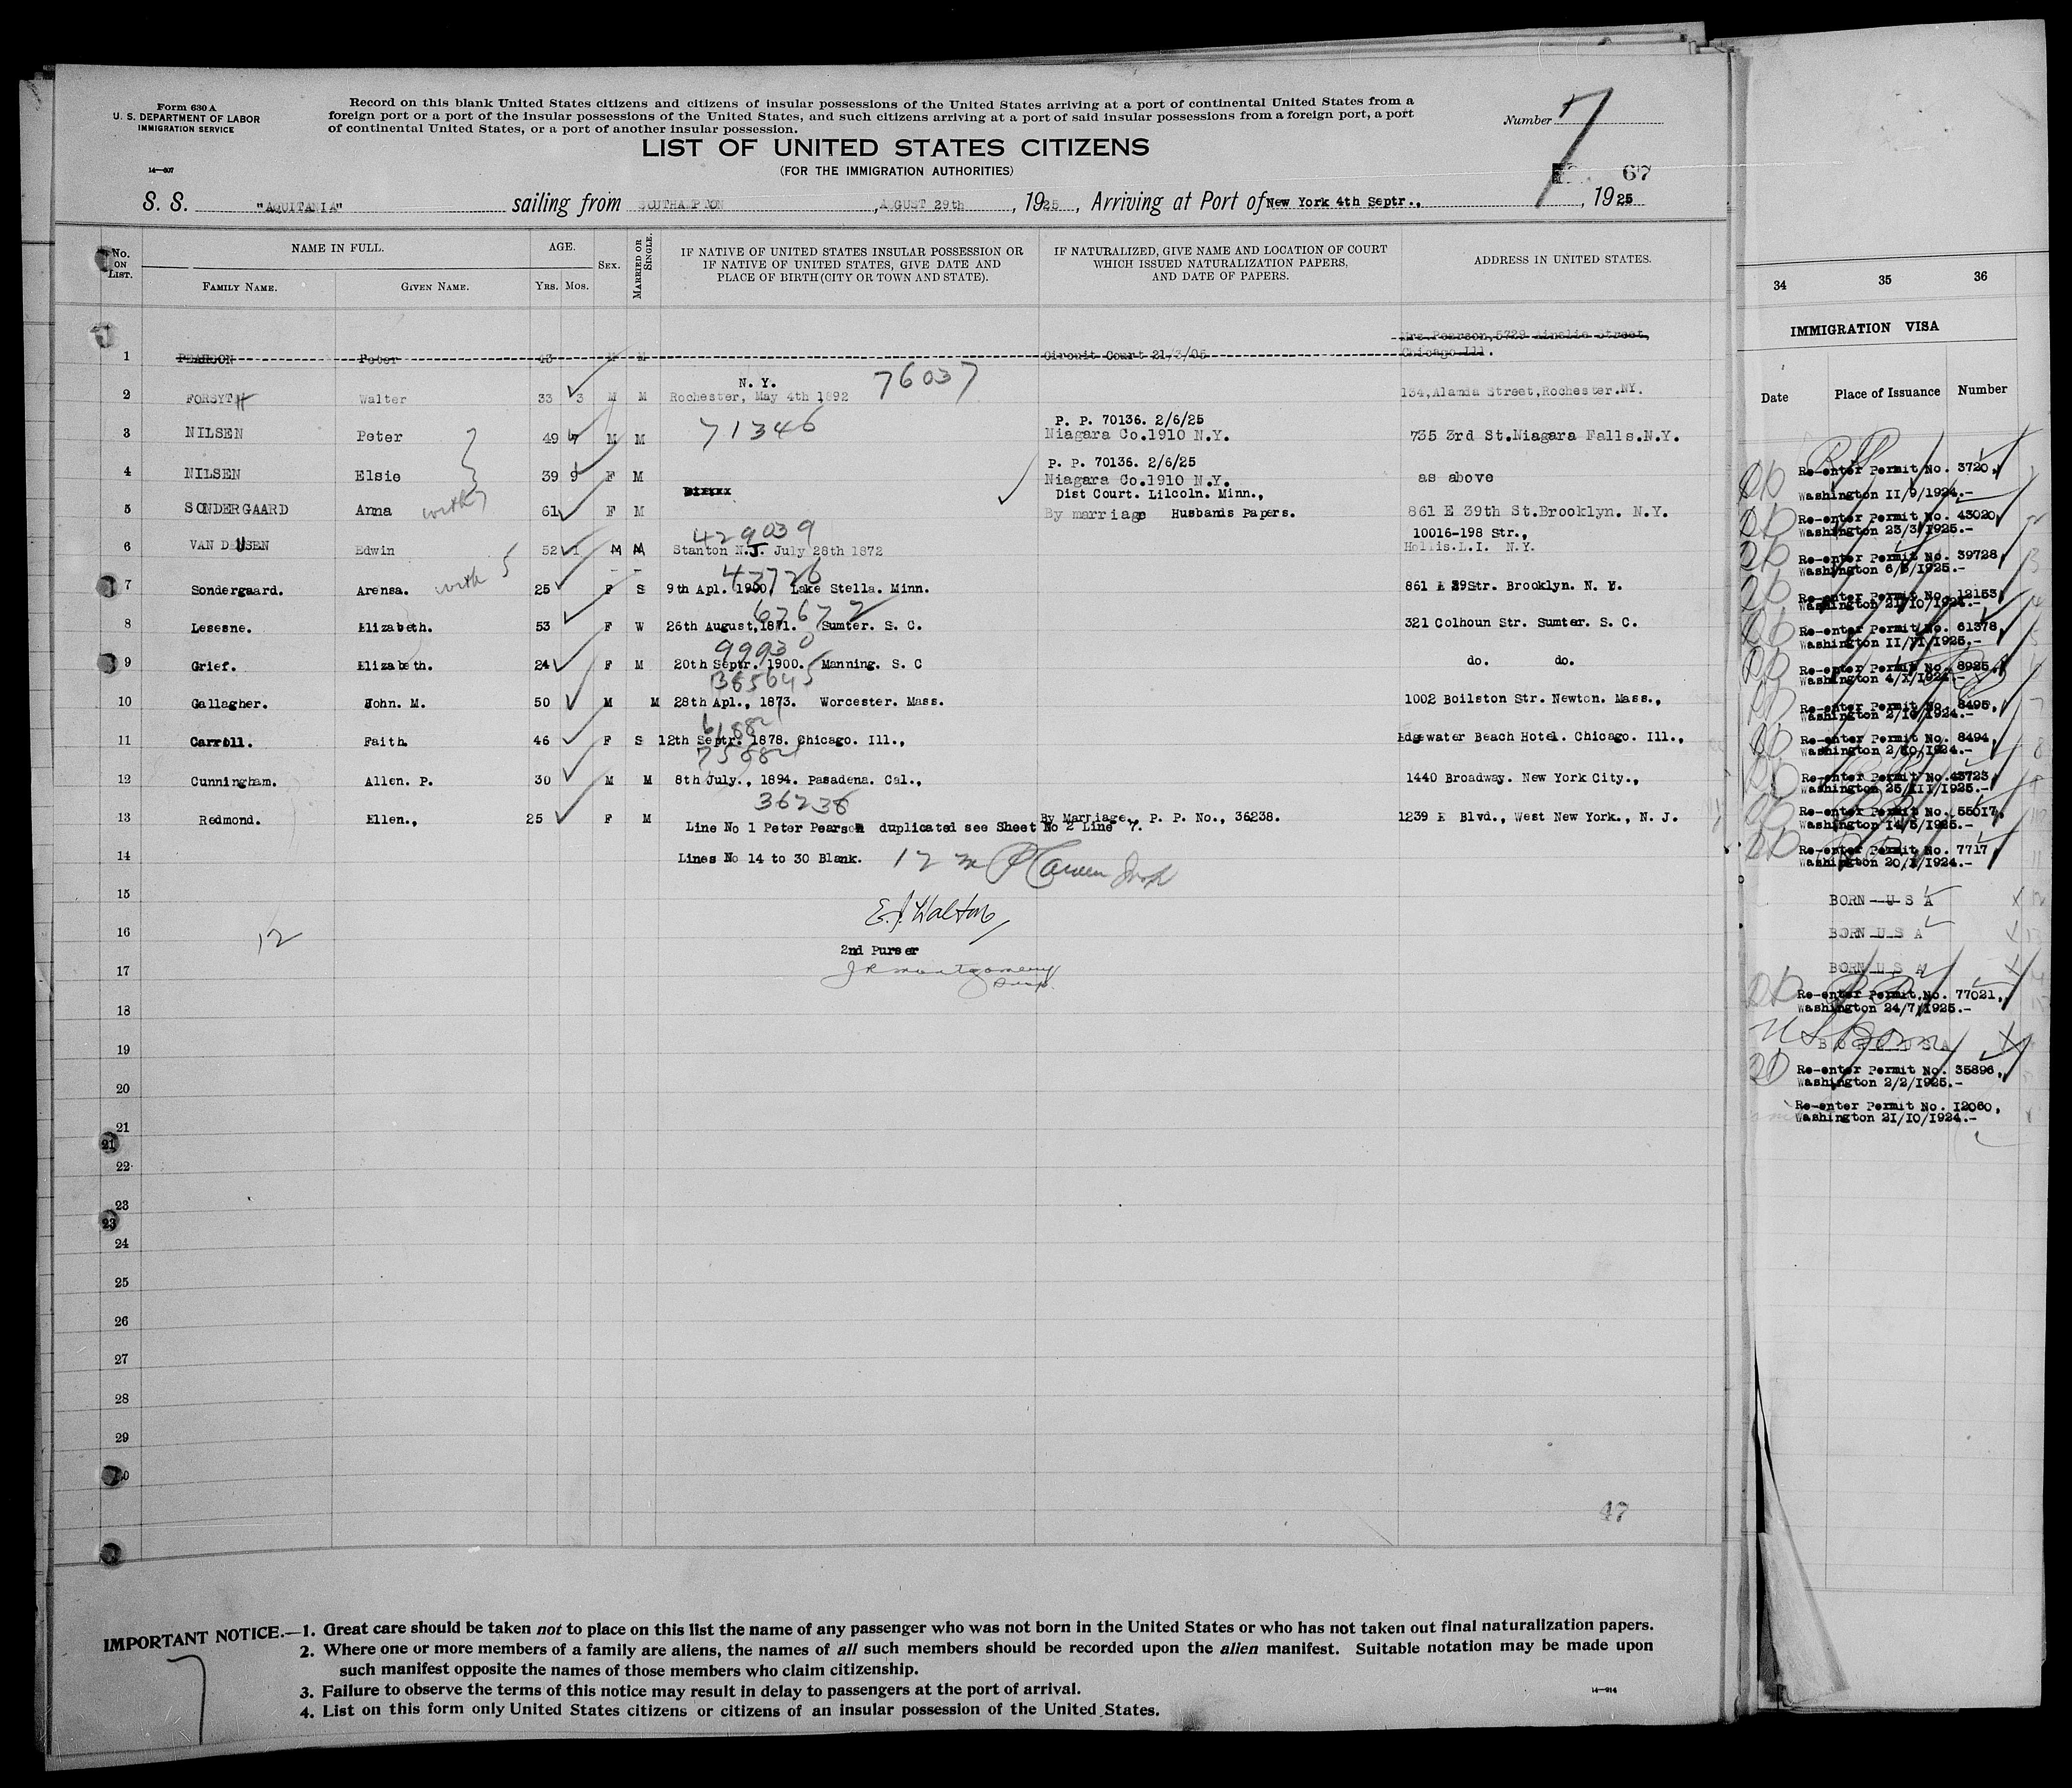 Form 630 A
U. S. DEPARTMENT OF LABOR
IMMIGRATION SERVICE
14—607
Record on this blank United States citizens and citizens of insular possessions of the United States arriving at a port of continental United States from a
foreign port or a port of the insular possessions of the United States, and such citizens arriving at a port of said insular possessions from a foreign port, a port
of continental United States, or a port of another insular possession.
Number 7
LIST OF UNITED STATES CITIZENS
(FOR THE IMMIGRATION AUTHORITIES)
67
S. S. "AQUITANIA" sailing from SOUTHAMPTON, AUGUST 29th, 1925, Arriving at Port of New York 4th Septr., , 1925
No. ON LIST. NAME IN FULL. AGE. SEX. MARRIED OR SINGLE. IF NATIVE OF UNITED STATES INSULAR POSSESSION OR IF NATIVE OF UNITED STATES, GIVE DATE AND PLACE OF BIRTH (CITY OR TOWN AND STATE). IF NATURALIZED, GIVE NAME AND LOCATION OF COURT WHICH ISSUED NATURALIZATION PAPERS, AND DATE OF PAPERS. ADDRESS IN UNITED STATES.
FAMILY NAME. GIVEN NAME. YRS. MOS.
Mrs. Pearson, 5729 Ainslie Street,
1 PEARSON Peter 43 M M Circuit Court 21/3/05 Chicago Ill.
N. Y. 76037
2 FORSYTH Walter 33 3 M M Rochester, May 4th 1892 134, Alamda Street, Rochester. NY.
71346 P. P. 70136. 2/6/25
3 NILSEN Peter 49 7 M M Niagara Co. 1910 N.Y. 735 3rd St. Niagara Falls. N.Y.
P. P. 70136. 2/6/25
4 NILSEN Elsie 39 9 F M Niagara Co. 1910 N.Y. as above
Dist Court. Lilcoln. Minn.,
5 SONDERGAARD Anna with 7 61 F M By marriage Husbands Papers. 861 E 39th St. Brooklyn. N.Y.
429039 10016-198 Str.,
6 VAN DEUSEN Edwin 52 1 M M Stanton N.J. July 28th 1872 Hollis. L.I. N.Y.
43726
7 Sondergaard. Arensa. with 5 25 F S 9th Apl. 1900, Lake Stella. Minn. 861 E 39 Str. Brooklyn. N. Y.
67672
8 Lesesne. Elizabeth. 53 F W 26th August, 1871. Sumter. S. C. 321 Colhoun Str. Sumter. S. C.
99930
9 Grief. Elizabeth. 24 F M 20th Septr. 1900. Manning. S. C do. do.
10 Gallagher. John. M. 50 M M 28th Apl., 1873. Worcester. Mass. 1002 Boilston Str. Newton. Mass.,
11 Carroll. Faith. 46 F S 12th Septr. 1878. Chicago. Ill., Edgewater Beach Hotel. Chicago. Ill.,
12 Cunningham. Allen. P. 30 M M 8th July., 1894. Pasadena. Cal., 1440 Broadway. New York City.,
36238
13 Redmond. Ellen., 25 F M By Marriage., P. P. No., 36238. 1239 E Blvd., West New York., N. J.
Line No 1 Peter Pearson duplicated see Sheet No 2 Line 7.
14 Lines No 14 to 30 Blank. 12
15
E. J. Walton
16 12
2nd Purser
17 J R Montgomery
18
19
20
21
22
23
24
25
26
27
28
29
30
47
IMPORTANT NOTICE.—1. Great care should be taken not to place on this list the name of any passenger who was not born in the United States or who has not taken out final naturalization papers.
2. Where one or more members of a family are aliens, the names of all such members should be recorded upon the alien manifest. Suitable notation may be made upon
such manifest opposite the names of those members who claim citizenship.
3. Failure to observe the terms of this notice may result in delay to passengers at the port of arrival.
4. List on this form only United States citizens or citizens of an insular possession of the United States.
14—914
7
34 35 36
IMMIGRATION VISA
Date Place of Issuance Number
Re-enter Permit No. 3720,
Washington II/9/1924.-
Re-enter Permit No. 43020,
Washington 23/3/1925.-
Re-enter Permit No. 39728,
Washington 6/3/1925.-
Re-enter Permit No. 12153,
Washington 21/10/1924.-
Re-enter Permit No. 61378,
Washington II/VI/1925.-
Re-enter Permit No. 8925,
Washington 4/X/1924.-
Re-enter Permit No. 8495,
Washington 2/10/1924.-
Re-enter Permit No. 8494,
Washington 2/10/1924.-
Re-enter Permit No. 43723,
Washington 25/III/1925.-
Re-enter Permit No. 55017,
Washington 14/5/1925.-
Re-enter Permit No. 7717
Washington 20/X/1924.-
BORN U S A
BORN U S A
BORN U S A
Re-enter Permit No. 77021,
Washington 24/7/1925.-
US Born
BORN U S A
Re-enter Permit No. 35896,
Washington 2/2/1925.-
Re-enter Permit No. I2060,
Washington 2I/IO/I924.-